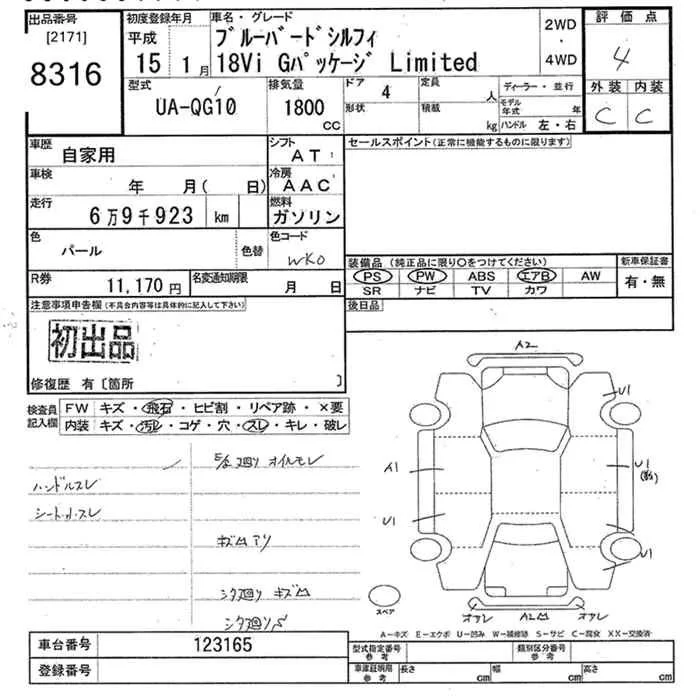 出品番号
[2171]
8316
初度登録年月
平成
15 1月
車名・グレード
ブルーバードシルフィ
18Vi Gパッケージ Limited
2WD
・
4WD
評価点
4
外装 内装
C C
型式
UA-QG10
排気量
1800
CC
ドア 4
形状
定員 人
積載 kg
ディーラー・並行
モデル年式 年
ハンドル 左・右
車歴
自家用
シフト
AT
車検
年 月( 日)
冷房
AAC
走行
6万9千923 km
燃料
ガソリン
色
パール
色替
色コード
WK0
R券
11,170円
名変通知期限
月 日
セールスポイント(正常に機能するものに限ります)
装備品(純正品に限り〇をつけてください)
PS PW ABS エアB AW
SR ナビ TV カワ
新車保証書
有・無
後日品
注意事項申告欄(不具合内容等は具体的に記入して下さい)
初出品
修復歴 有〔箇所 〕
検査員
記入欄
FW キズ・飛石・ヒビ割・リペア跡・×要
内装 キズ・汚レ・コゲ・穴・スレ・キレ・破レ
ハンドルスレ
シート小スレ
オイルモレ
キズ凹アリ
シタ廻リ キズ凹
シタ廻リS
A2
U1
A1
U1
U1
U1
A2凹
スペア
A-キズ E-エクボ U-凹み W-補修跡 S-サビ C-腐食 XX-交換済
車台番号 123165
登録番号
型式指定番号
参考
類別区分番号
参考
車庫証明用
参考
長さ cm
幅 cm
高さ cm